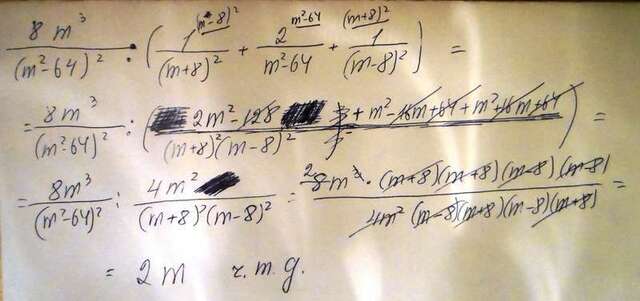 8 m³/(m²-64)² : ( 1^(m-8)²/(m+8)² + 2^m²-64/m²-64 + 1^(m+8)²/(m-8)² ) =
= 8m³/(m²-64)² : ( 2m²-128 + m²-16m+64+m²+16m+64/(m+8)²(m-8)² ) =
= 8m³/(m²-64)² : 4m²/(m+8)²(m-8)² = 2 8m³·(m+8)(m+8)(m-8)(m-8)/4m²(m-8)(m+8)(m-8)(m+8) =
= 2m ч.т.д.